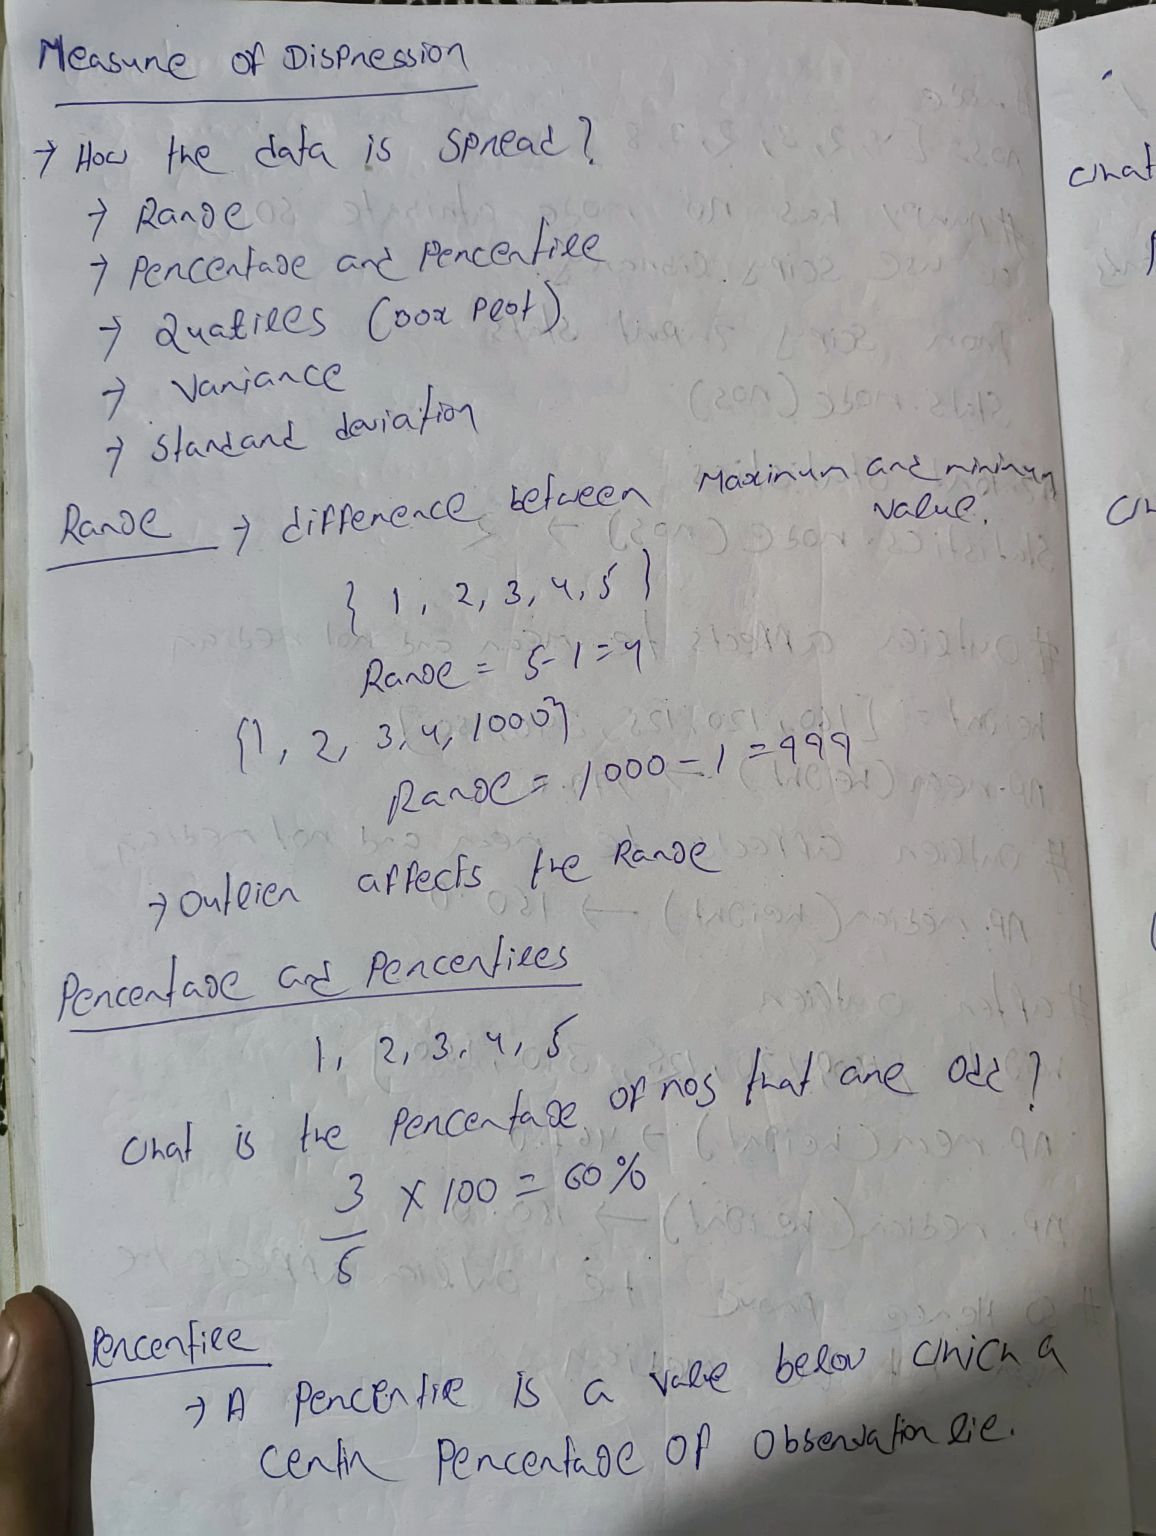 Measure of Dispression
→ How the data is spread?
→ Range
→ Percentage and Percentile
→ Quatiles (box plot)
→ Variance
→ Standard deviation
Range → difference between Maximum and minimum
value.
{ 1, 2, 3, 4, 5 }
Range = 5-1=4
{1, 2, 3, 4, 1000}
Range = 1000-1=999
→ Outlier affects the Range
Percentage and Percentiles
1, 2, 3, 4, 5
What is the Percentage of nos that are odd?
3 × 100 = 60%
5
Percentile
→ A Percentile is a value below which a
certin Percentage of Observation lie.
what